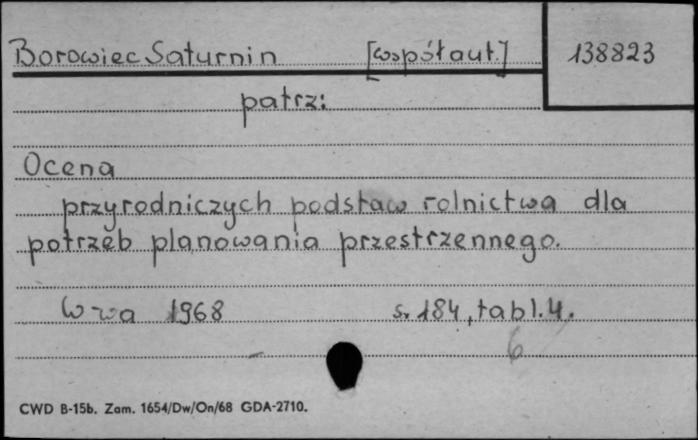 Borowiec Saturnin [współaut.] 138823
patrz:
Ocena
przyrodniczych podstaw rolnictwa dla
potrzeb planowania przestrzennego.
W-wa 1968 s. 184, tabl. 4.
6
CWD B-15b. Zam. 1654/Dw/On/68 GDA-2710.